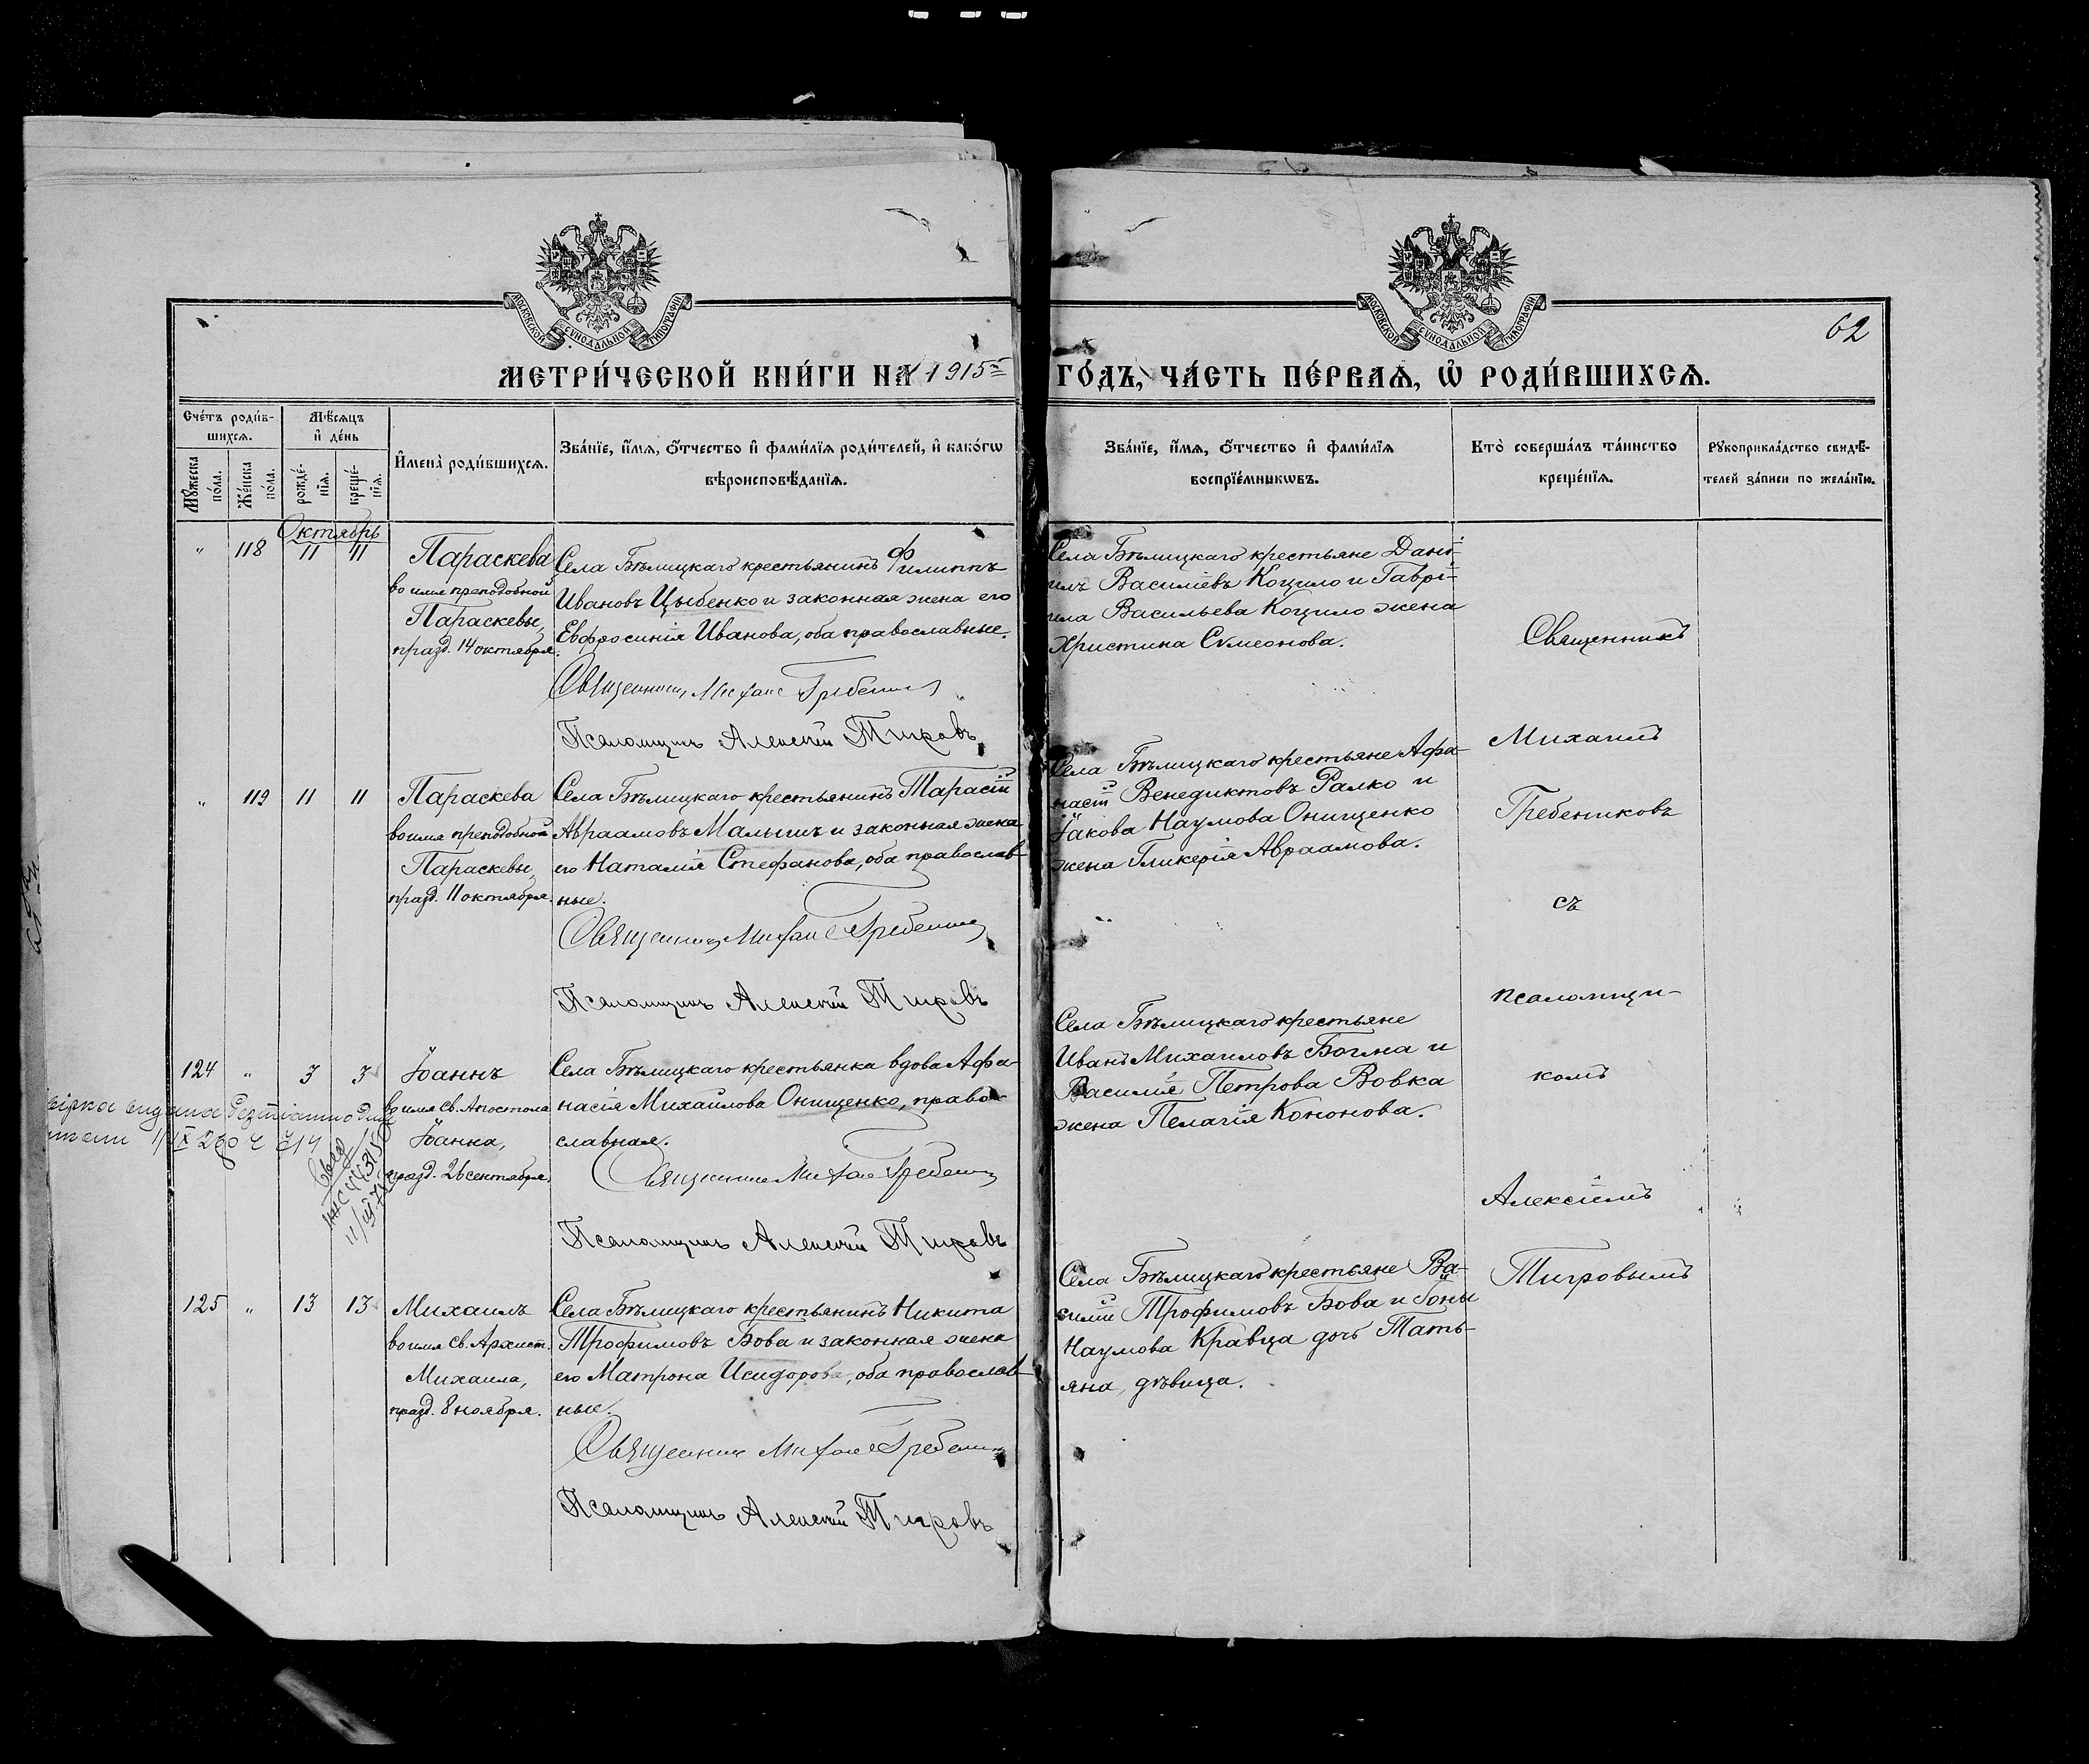 МОСКОВСКОЙ СѴНОДАЛЬНОЙ ТИПОГРАФІИ
МОСКОВСКОЙ СѴНОДАЛЬНОЙ ТИПОГРАФІИ
62
МЕТРИ́ЧЕСКОЙ КНИ́ГИ НА 1915 ГО́ДЪ, ЧА́СТЬ ПЕ́РВАѦ, Ѡ҆ РОДИ́ВШИХСѦ.
Сче́тъ роди́в-
шихсѧ.
Мѣ́сѧцъ
и҆ де́нь
Мꙋ́жеска по́ла.
Же́нска по́ла.
рожде́-
нїѧ.
креще́-
нїѧ.
И҆мена̀ роди́вшихсѧ.
Зва́нїе, и҆́мѧ, ѻ҆́тчество и҆ фами́лїѧ роди́телей, и҆ како́гѡ
вѣроисповѣ́данїѧ.
Зва́нїе, и҆́мѧ, ѻ҆́тчество и҆ фами́лїѧ
воспрїе́мникѡвъ.
Кто̀ соверша́лъ та́инство
креще́нїѧ.
Рꙋкоприкла́дство свидѣ́-
телей за́писи по жела́нїю.
Октябрь
" 118 11 11
Параскева
во имя преподобной
Параскевы,
празд. 14 октября.
Села Бѣлицкаго крестьянинъ Филиппъ
Ивановъ Цыбенко и законная жена его
Евфросинія Иванова, оба православные.
Священникъ Михаилъ Гребениковъ
Псаломщикъ Алексій Тигровъ
Села Бѣлицкаго крестьяне Дані-
илъ Василіевъ Коцило и Гаврі-
ила Васильева Коцило жена
Христина Сѵмеонова.
" 119 11 11
Параскева
во имя преподобной
Параскевы,
празд. 11 октября.
Села Бѣлицкаго крестьянинъ Тарасій
Авраамовъ Малышъ и законная жена
его Наталія Стефанова, оба православ-
ные.
Священникъ Михаилъ Гребениковъ
Псаломщикъ Алексій Тигровъ
Села Бѣлицкаго крестьяне Афа-
насій Венедиктовъ Ралко и
Іакова Наумова Онищенко
жена Гликерія Авраамова.
124 " 3 3
Іоаннъ
во имя Св. Апостола
Іоанна,
празд. 26 сентября.
Села Бѣлицкаго крестьянка вдова Афа-
насія Михаилова Онищенко, право-
славная.
Священникъ Михаилъ Гребениковъ
Псаломщикъ Алексій Тигровъ
Села Бѣлицкаго крестьяне
Иванъ Михаиловъ Богма и
Василія Петрова Вовка
жена Пелагія Кононова.
125 " 13 13
Михаилъ
во имя Св. Архист.
Михаила,
празд. 8 ноября.
Села Бѣлицкаго крестьянинъ Никита
Трофимовъ Бова и законная жена
его Матрона Исидорова, оба православ-
ные.
Священникъ Михаилъ Гребениковъ
Псаломщикъ Алексій Тигровъ
Села Бѣлицкаго крестьяне Ва-
силій Трофимовъ Бова и Іоны
Наумова Кравца дочь Тать-
яна, дѣвица.
Священникъ
Михаилъ
Гребениковъ
съ
псаломщи-
комъ
Алексіемъ
Тигровымъ